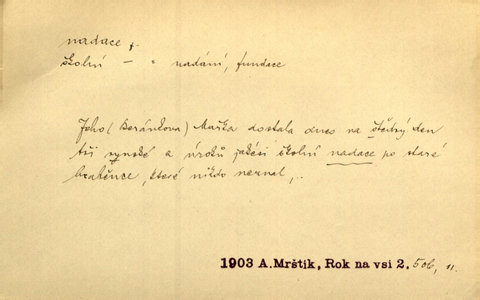 nadace f.
školní — „ nadání, fundace
Jeho (Beránkova) Mařka dostala dnes na štědrý den
tři rýnské a úroků jakési školní nadace po staré
hraběnce, které nikdo neznal,..
1903 A. Mrštík, Rok na vsi 2. 506, 11.